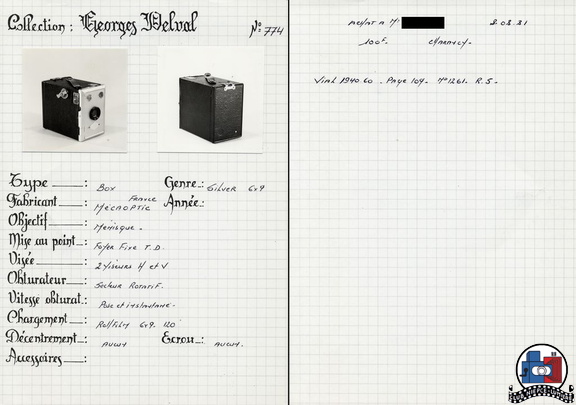 Collection : Georges Delval N°: 774
Type : Box Genre : Silver 6x9
Fabricant : France Année :
Mecaoptic
Objectif : Menisque.
Mise au point : Foyer Fixe T.D.
Visée : 2 Viseurs H et V
Obturateur : Secteur Rotatif.
Vitesse obturat. : Pose et instantané.
Chargement : Rollfilm 6x9. 120
Décentrement : aucun Ecrou : aucun.
Accessoires :
Achat a M. 8.03.81
100F. Charnay.
Vial 1940.60. Page 109. N°1261. R.S.